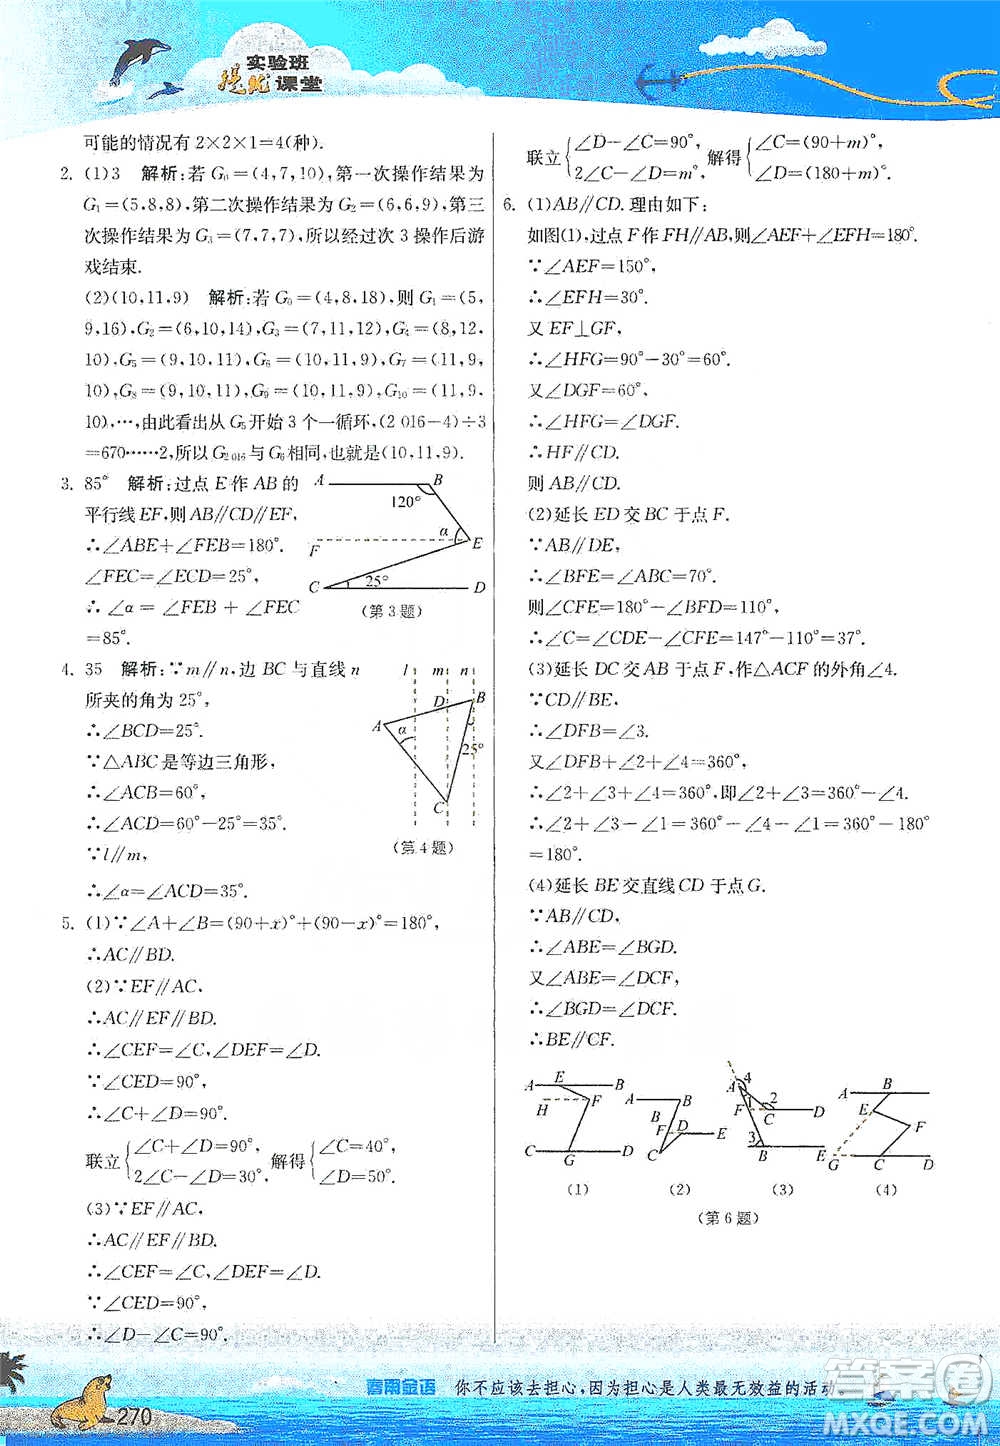 实验班
提优课堂
可能的情况有 2×2×1=4(种).
2. (1)3 解析:若 G₀=(4,7,10),第一次操作结果为
G₁=(5,8,8),第二次操作结果为 G₂=(6,6,9),第三
次操作结果为 G₃=(7,7,7),所以经过次 3 操作后游
戏结束.
(2)(10,11,9) 解析:若 G₀=(4,8,18),则 G₁=(5,
9,16),G₂=(6,10,14),G₃=(7,11,12),G₄=(8,12,
10),G₅=(9,10,11),G₆=(10,11,9),G₇=(11,9,
10),G₈=(9,10,11),G₉=(10,11,9),G₁₀=(11,9,
10),…,由此看出从 G₅开始 3 个一循环,(2 016-4)÷3
=670……2,所以 G₂ ₀₁₆与 G₆相同,也就是(10,11,9).
3. 85° 解析:过点 E 作 AB 的
平行线 EF,则 AB∥CD∥EF,
∴∠ABE+∠FEB=180°.
∠FEC=∠ECD=25°,
∴∠α=∠FEB+∠FEC
=85°.
A B
120°
α
F E
C 25° D
(第 3 题)
4. 35 解析:∵m∥n,边 BC 与直线 n
所夹的角为 25°,
∴∠BCD=25°.
∵△ABC 是等边三角形,
∴∠ACB=60°,
∴∠ACD=60°-25°=35°.
∵l∥m,
∴∠α=∠ACD=35°.
l m n
D B
A α
25°
C
(第 4 题)
5. (1)∵∠A+∠B=(90+x)°+(90-x)°=180°,
∴AC∥BD.
(2)∵EF∥AC,
∴AC∥EF∥BD.
∴∠CEF=∠C,∠DEF=∠D.
∵∠CED=90°,
∴∠C+∠D=90°.
联立{∠C+∠D=90°, 2∠C-∠D=30°, 解得{∠C=40°, ∠D=50°.
(3)∵EF∥AC,
∴AC∥EF∥BD.
∴∠CEF=∠C,∠DEF=∠D.
∵∠CED=90°,
∴∠D-∠C=90°.
联立{∠D-∠C=90°, 2∠C-∠D=m°, 解得{∠C=(90+m)°, ∠D=(180+m)°.
6. (1)AB∥CD.理由如下:
如图(1),过点 F 作 FH∥AB,则∠AEF+∠EFH=180°.
∵∠AEF=150°,
∴∠EFH=30°.
又 EF⊥GF,
∴∠HFG=90°-30°=60°.
又∠DGF=60°,
∴∠HFG=∠DGF.
∴HF∥CD.
则 AB∥CD.
(2)延长 ED 交 BC 于点 F.
∵AB∥DE,
∴∠BFE=∠ABC=70°.
则∠CFE=180°-∠BFD=110°,
∴∠C=∠CDE-∠CFE=147°-110°=37°.
(3)延长 DC 交 AB 于点 F,作△ACF 的外角∠4.
∵CD∥BE,
∴∠DFB=∠3.
又∠DFB+∠FAE=180°... 
∴∠2+∠3+∠4=360°,即∠2+∠3=360°-∠4.
∴∠2+∠3-∠1=360°-∠4-∠1=360°-180°
=180°.
(4)延长 BE 交直线 CD 于点 G.
∵AB∥CD,
∴∠ABE=∠BGD.
又∠ABE=∠DCF,
∴∠BGD=∠DCF.
∴BE∥CF.
A E B
H F
C G D
(1)
A B
B
F D E
C
(2)
A 4
1 2
F C D
3
B E
(3)
A B
E F
G C D
(4)
(第 6 题)
270
春雨金语 你不应该去担心,因为担心是人类最无效益的活动
答案圈
MXQE.COM